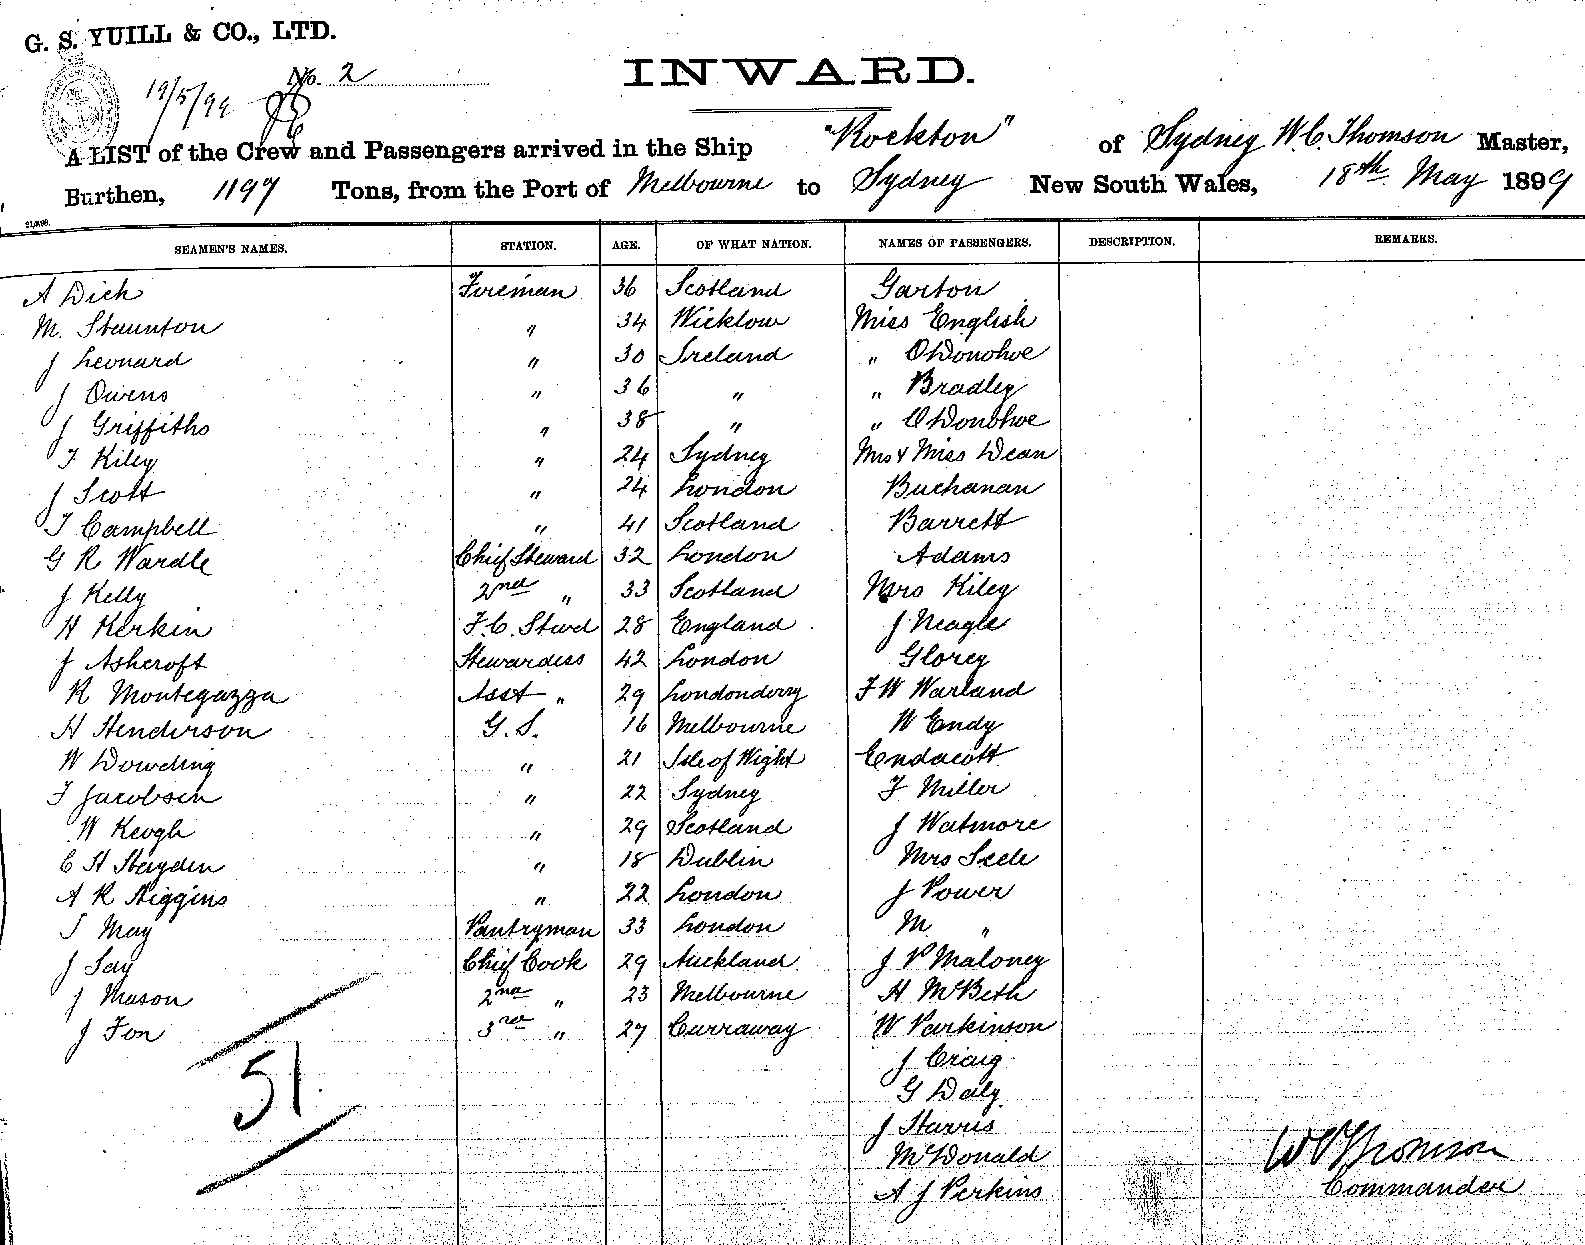 G. S. YUILL & CO., LTD.
No. 2
19/5/99
INWARD.
A LIST of the Crew and Passengers arrived in the Ship "Rockton" of Sydney W. C. Thomson Master,
Burthen, 1197 Tons, from the Port of Melbourne to Sydney New South Wales, 18th May 1899
SEAMEN'S NAMES. STATION. AGE. OF WHAT NATION. NAMES OF PASSENGERS. DESCRIPTION. REMARKS.
A Dick Fireman 36 Scotland Garton
M. Staunton " 34 Wicklow Miss English
J Leonard " 30 Ireland " O'Donohoe
J Owens " 36 " " Bradley
J Griffiths " 38 " " O'Donohoe
T Kiley " 24 Sydney Mrs & Miss Dean
J Scott " 24 London Buchanan
T Campbell " 41 Scotland Barrett
G R Wardle Chief Steward 32 London Adams
J Kelly 2nd " 33 Scotland Mrs Kiley
H Kerkin F.C. Stwd 28 England J Neagle
J Ashcroft Stewardess 42 London Glorey
R Montegazza Asst " 29 Londonderry F W Warland
H Henderson G. S. 16 Melbourne W Endy
W Dowding " 21 Isle of Wight Endacott
F Jacobsen " 22 Sydney F Miller
W Keogh " 29 Scotland J Watmore
C H Hayden " 18 Dublin Mrs Seele
A R Higgins " 22 London J Power
J May Pantryman 33 London M "
J Say Chief Cook 29 Auckland J P Maloney
J Mason 2nd " 23 Melbourne H McBeth
J Fon 3rd " 27 Curraway W Parkinson
J Craig
G Daly
51
J Harris
McDonald
A J Perkins
W C Thomson
Commander